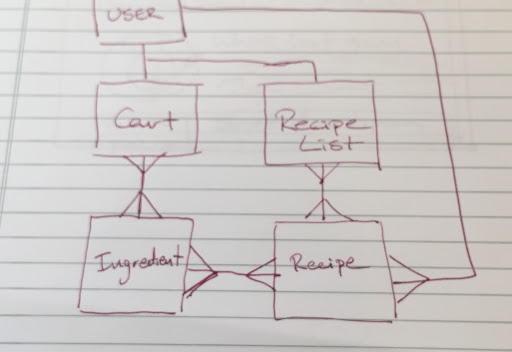 USER
Cart
Recipe
List
Ingredient
Recipe